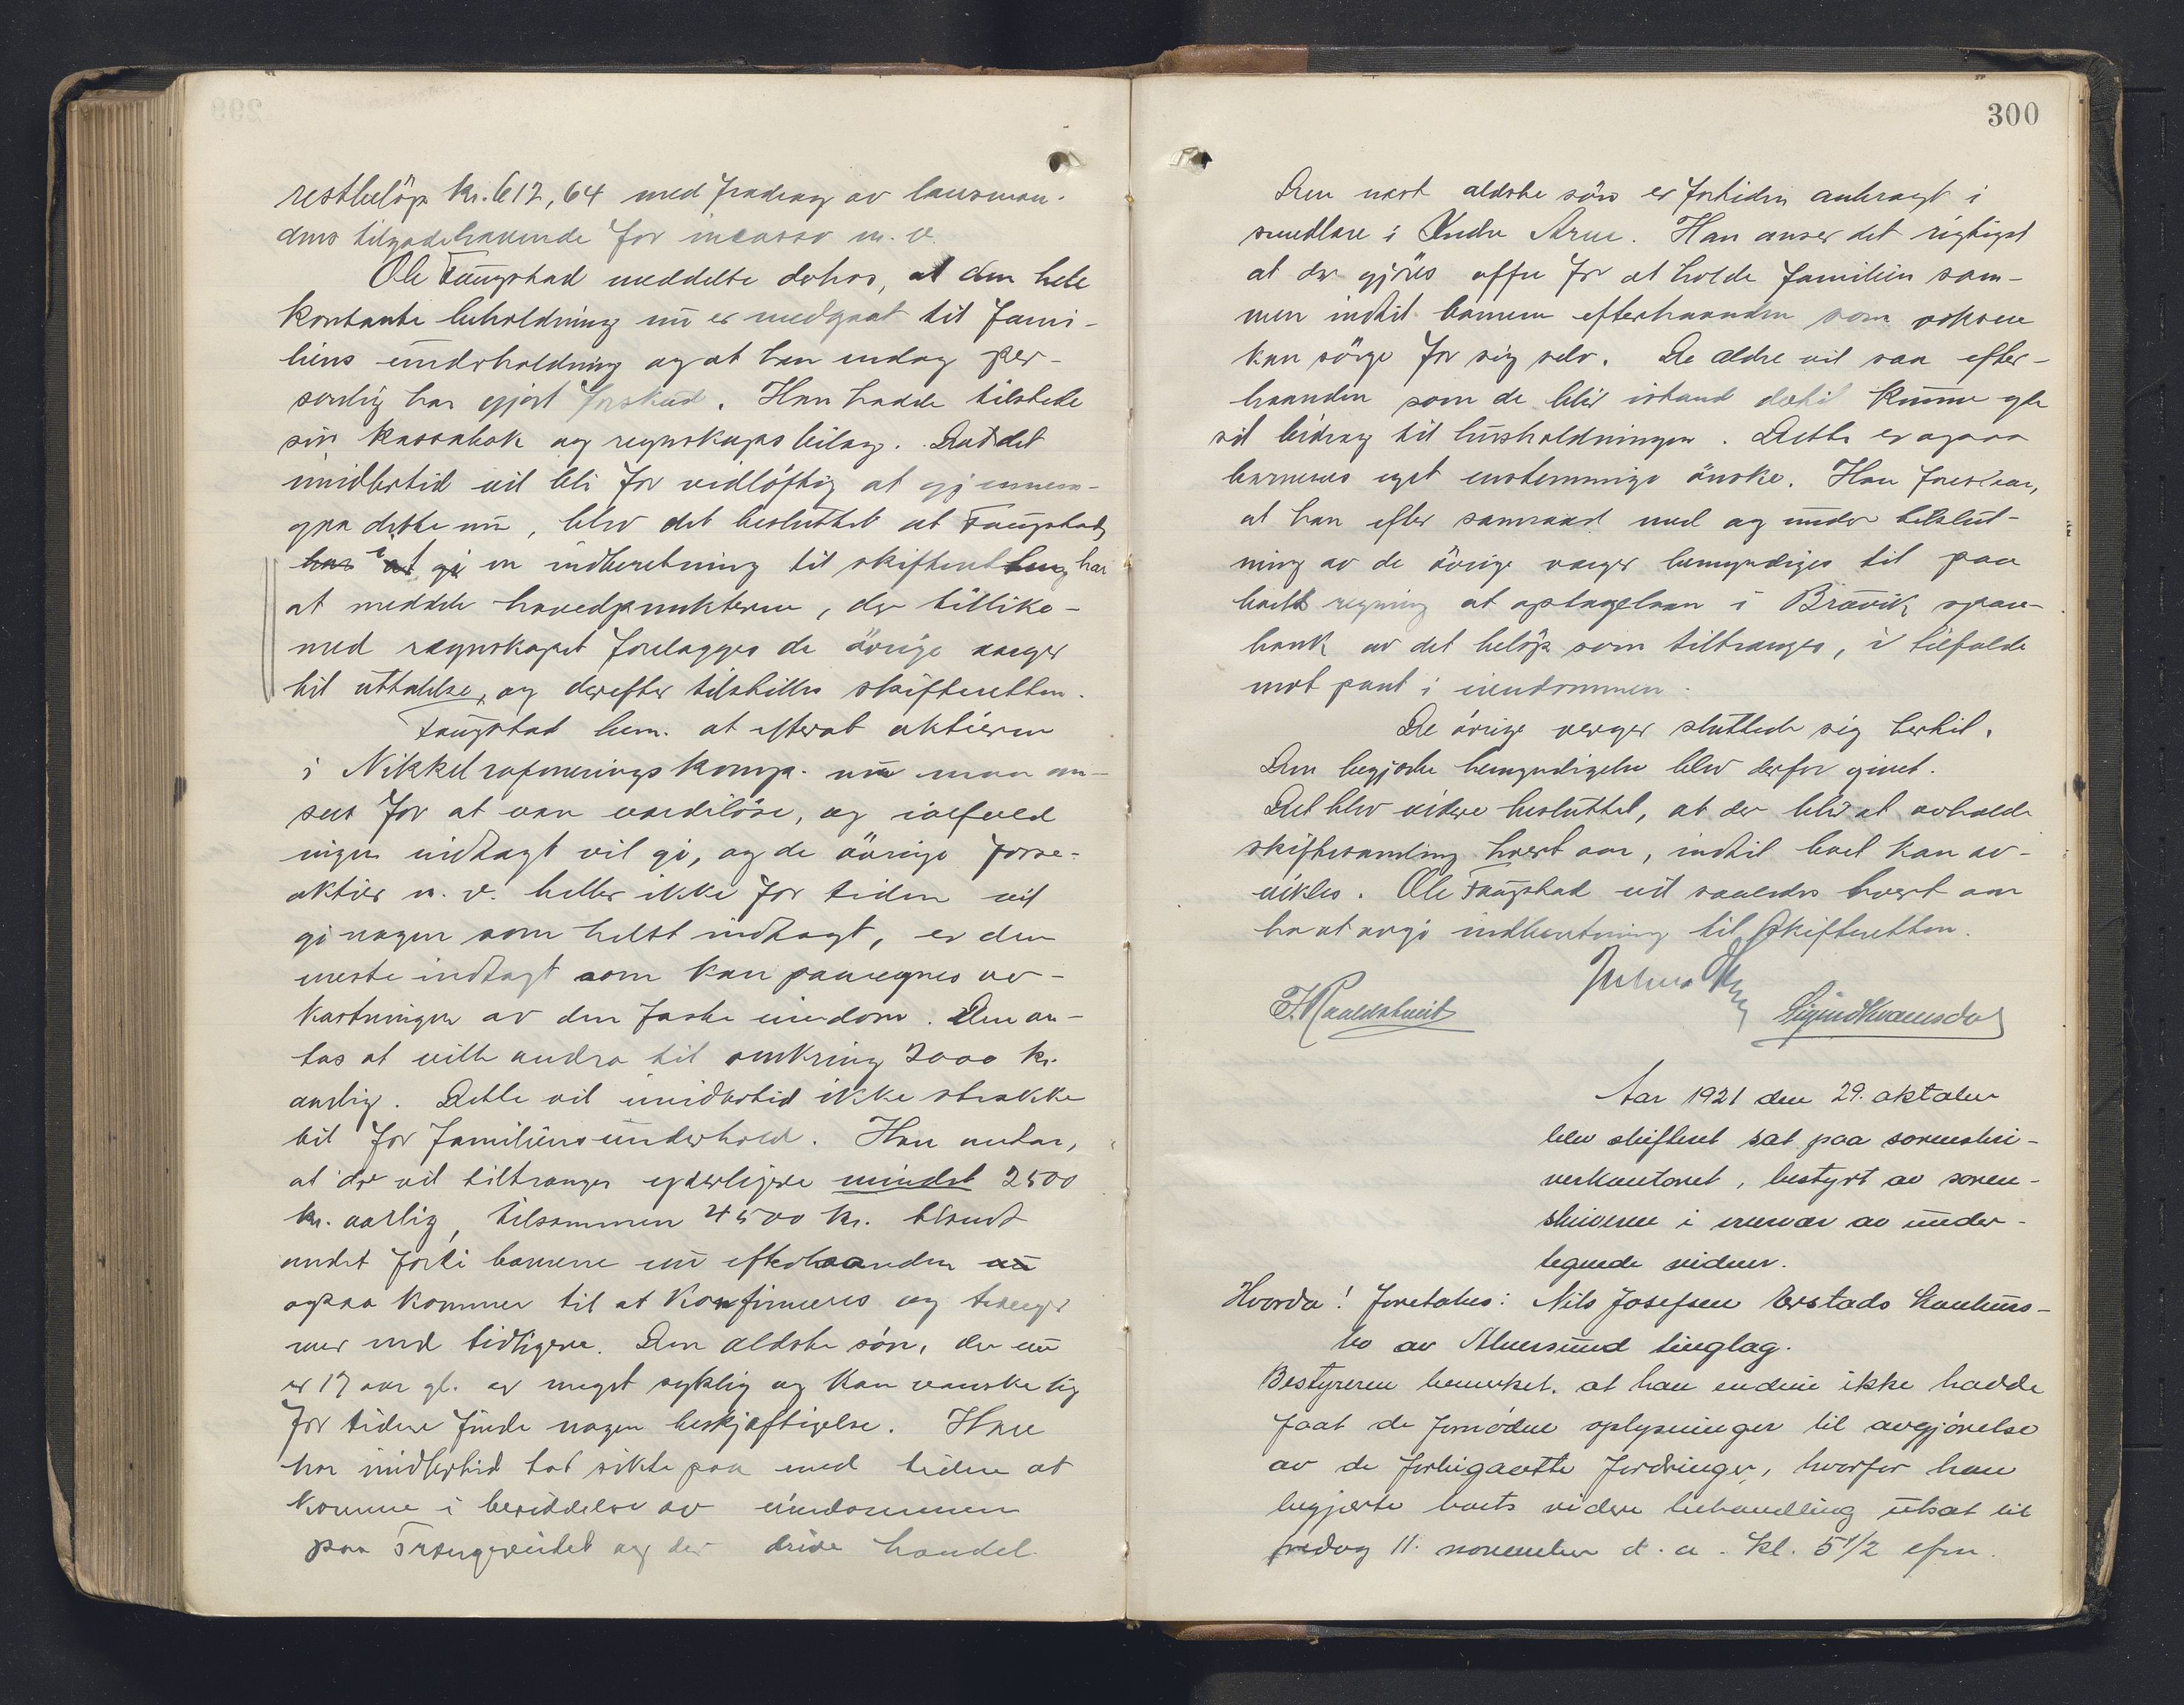 restbelöp kr. 612,64 med fradrag av lensman-
dens tilgodehavende for incasso m. v.
Ole Faugstad meddelte derhos, at den hele
kontante beholdning nu er medgaat til fami-
liens underholdning og at han endog per-
sonlig har gjort forskud. Han hadde tilstede
sin kassabok og regnskapsbilag. Da det
imidlertid vil bli for vidlöftig at gjennem-
gaa dette nu, blev det besluttet at Faugstad,
har at gi en indberetning til skifteretten, har
at meddele hovedpunkterne, der tillike-
med regnskapet forelægges de övrige verger
til uttalelse, og derefter tilstilles skifteretten.
Faugstad bem. at efterat aktierne
i Nikkelrafineringskomp. nu maa an-
sees for at være værdilöse, og ialfald
ingen indtægt vil gi, og de övrige
aktier m. v. heller ikke for tiden vil
gi nogen som helst indtægt, er den
eneste indtægt som kan paaregnes av-
kastningen av den faste eiendom. Den an-
tas at ville andra til omkring 2000 kr.
aarlig. Dette vil imidlertid ikke strække
til for familiens underhold. Han antar,
at der vil tiltrænges yderligere mindst 2500
kr. aarlig, tilsammen 4500 kr. blandt
andet fordi barnene nu efterhaanden nu
ogsaa kommer til at konfirmeres og trænger
mer end tidligere. Den ældste sön, der nu
er 17 aar gl. er meget sykelig og kan vanskelig
for tiden finde nogen beskjæftigelse. Han
har imidlertid tat sikte paa med tiden at
komme i besiddelse av eiendommen
paa Trængereidet og der drive handel.
300
Den næst ældste sön er fortiden anbragt i
smedlære i Indre Arne. Han anser det rigtigst
at der gjöres offer for at holde familien sam-
men indtil barnene efterhaanden som voksne
kan sörge for sig selv. De ældre vil saa efter-
haanden som de blir istand dertil kunne yde
sit bidrag til husholdningen. Dette er ogsaa
barnenes eget enstemmige önske. Han foreslaar,
at han efter samraad med og under tilslut-
ning av de övrige verger bemyndiges til paa
boets regning at optagelaan i Brævik spare-
bank av det belöp som tiltrænges, i tilfælde
mot pant i eiendommen.
De övrige verger sluttede sig hertil.
Den begjærte bemyndigelse blev derfor givet.
Det blev videre besluttet, at der blir at avholde
skiftesamling hvert aar, indtil boet kan av-
vikles. Ole Faugstad vil saaledes hvert aar
ha at avgi indberetning til skifteretten.
Sigurd Kvamsdal
Aar 1921 den 29. oktober
blev skifteret sat paa sorenskri-
verkontoret, bestyrt av soren-
skriveren i nærvær av under-
tegnede vidner.
Hvorda! Foretokes: Nils Josefsen Erstads konkurs-
bo av Alversund tinglag.
Bestyreren bemerket, at han endnu ikke hadde
faat de fornödne oplysninger til avgjörelse
av de forbigaatte fordringer, hvorfor han
begjærte boets videre behandling utsat til
fredag 11. november d. a. kl. 5 1/2 efm.